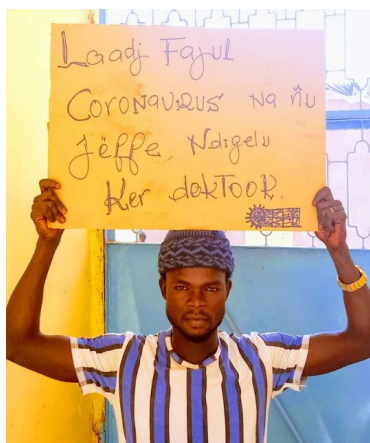 Laadj Fajul
Coronavirus na ñu
Jëffe Ndigelu
Ker dokTooR.